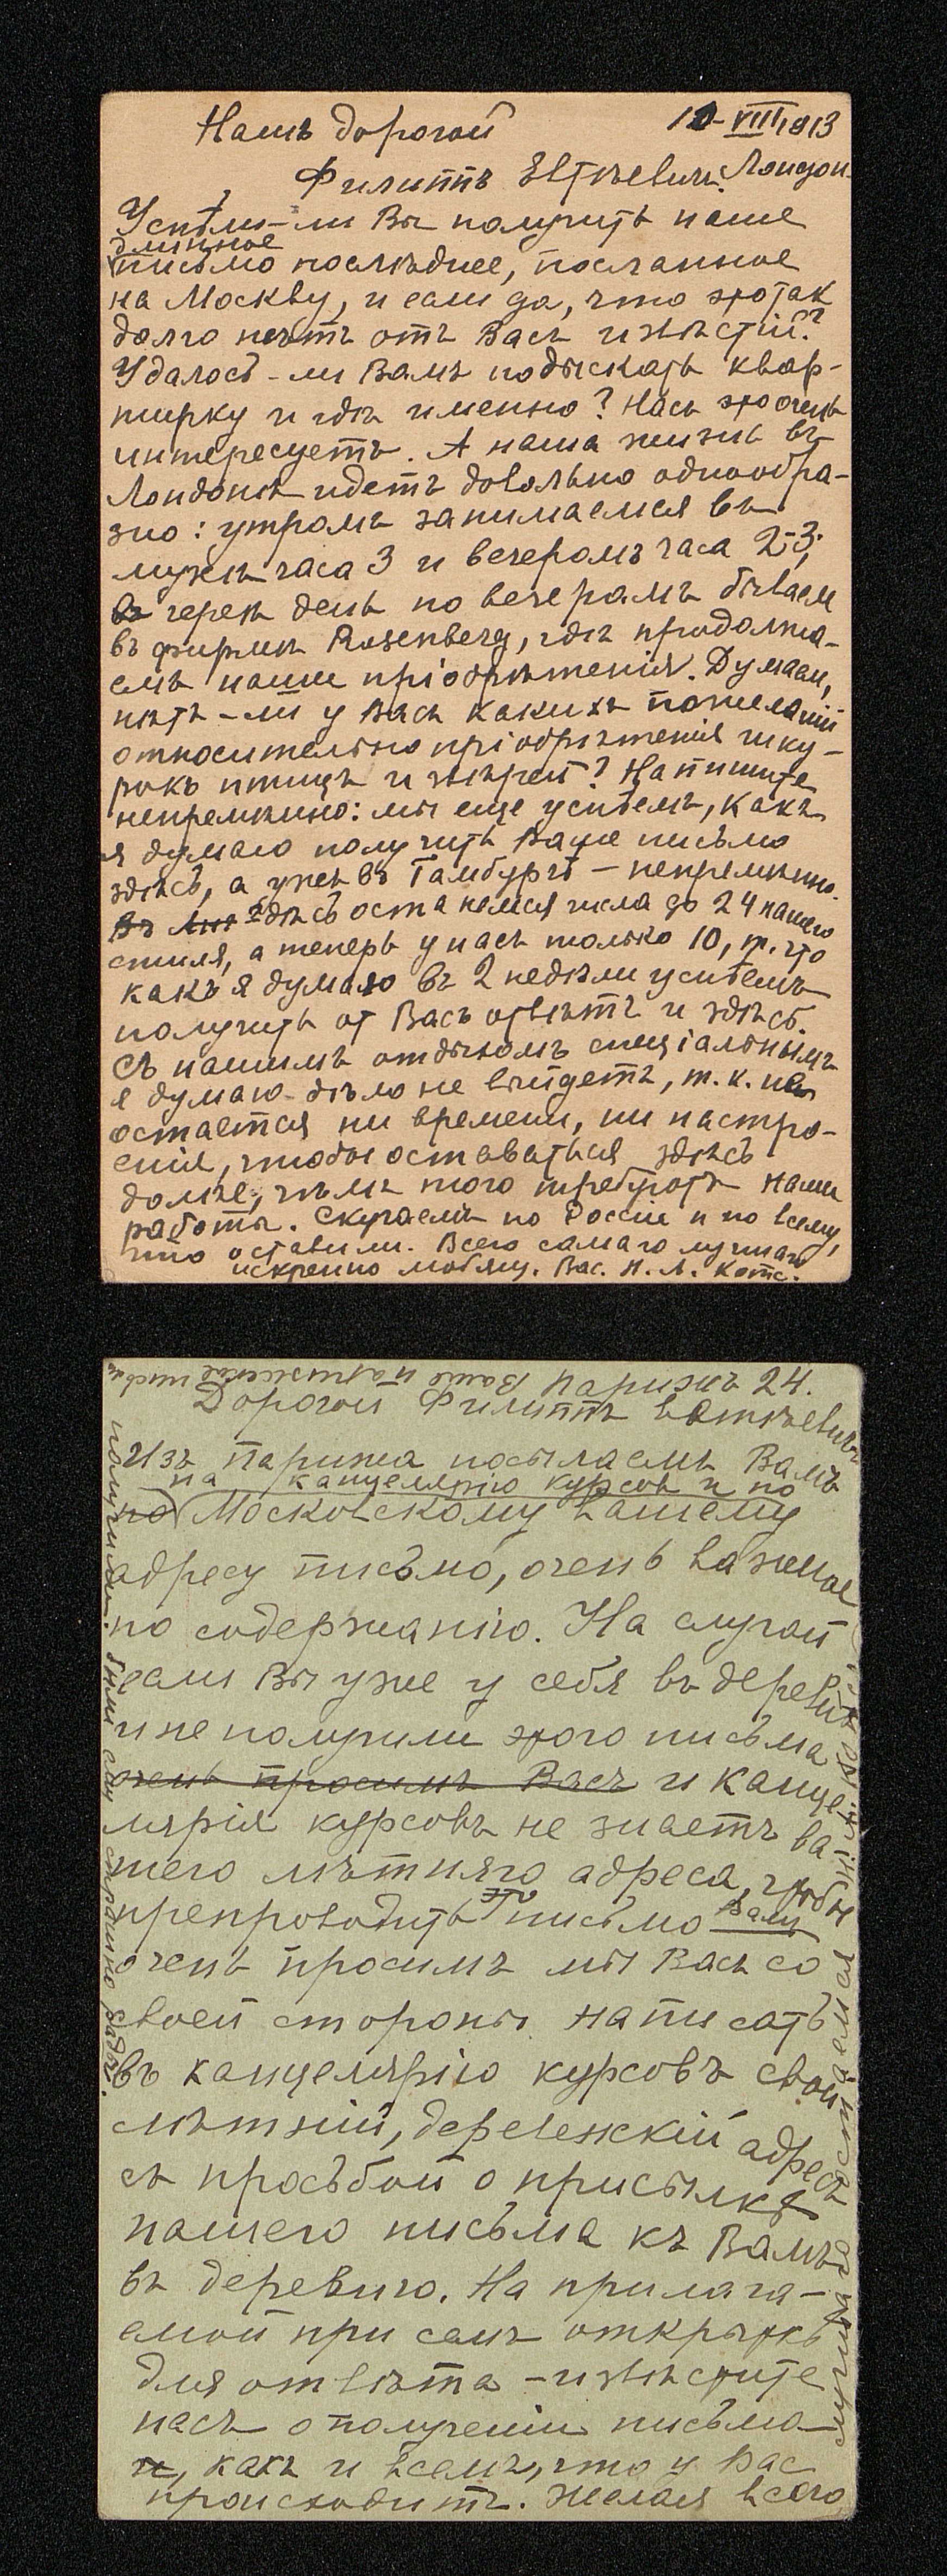 Нашъ дорогой 10-VIII 1913
Филиппъ Евтѣевичъ. Лондон.
Успѣли-ли Вы получить наше
длинное
письмо послѣднее, посланное
на Москву, и если да, что это так
долго нѣтъ отъ Васъ извѣстій?
Удалось-ли Вамъ подыскать квар-
тирку и гдѣ именно? Насъ это очень
интересуетъ. А наша жизнь въ
Лондонѣ идетъ довольно однообра-
зно: утромъ занимаемся въ
музеѣ часа 3 и вечеромъ часа 2-3;
въ через день по вечерамъ бываем
въ фирмѣ Rosenberg, гдѣ продолжа-
емъ наши пріобрѣтенія. Думаем,
нѣтъ-ли у Васъ какихъ пожеланій
относительно пріобрѣтенія шку-
рокъ птицъ и звѣрей? Напишите
непремѣнно: мы еще успѣемъ, какъ
я думаю получить Ваше письмо
здѣсь, а уже въ Гамбургѣ - непремѣнно.
Въ здѣсь останемся числа до 24 нашего
стиля, а теперь у насъ только 10, т. что
какъ я думаю въ 2 недѣли успѣемъ
получить от Васъ отвѣтъ и здѣсь.
Съ нашимъ отдыхомъ спеціальнымъ
я думаю дѣло не выйдетъ, т. к. не
остается ни времени, ни настро-
енія, чтобы оставаться здѣсь
долѣе, чѣмъ того требуютъ наши
работы. Скучаемъ по Россіи и по всему,
что оставили. Всего самаго лучшаго
искренно любящ. Вас. Н. Л. Котс.
Парижъ 24.
Дорогой Филиппъ Евтѣевичъ
Изъ Парижа посылаемъ Вамъ
на канцелярію курсов и по
по Московскому Вашему
адресу письмо, очень важное
по содержанію. На случай
если Вы уже у себя въ деревнѣ
и не получили этого письма
очень просимъ Васъ и канце-
лярія курсовъ не знаетъ ва-
шего лѣтняго адреса, чтобы
препроводить это письмо Вамъ
очень просимъ мы Васъ со
своей стороны написать
въ канцелярію курсовъ свой
лѣтній, деревенскій адресъ
съ просьбой о присылкѣ
нашего письма къ Вамъ
въ деревню. На прилага-
емой при семъ открыткѣ
для отвѣта - извѣстите
насъ о полученіи письма
и, какъ и всемъ, что у Вас
происходитъ. Желая всего
Ваше парижское письмо
получили. были ему страшно рады.